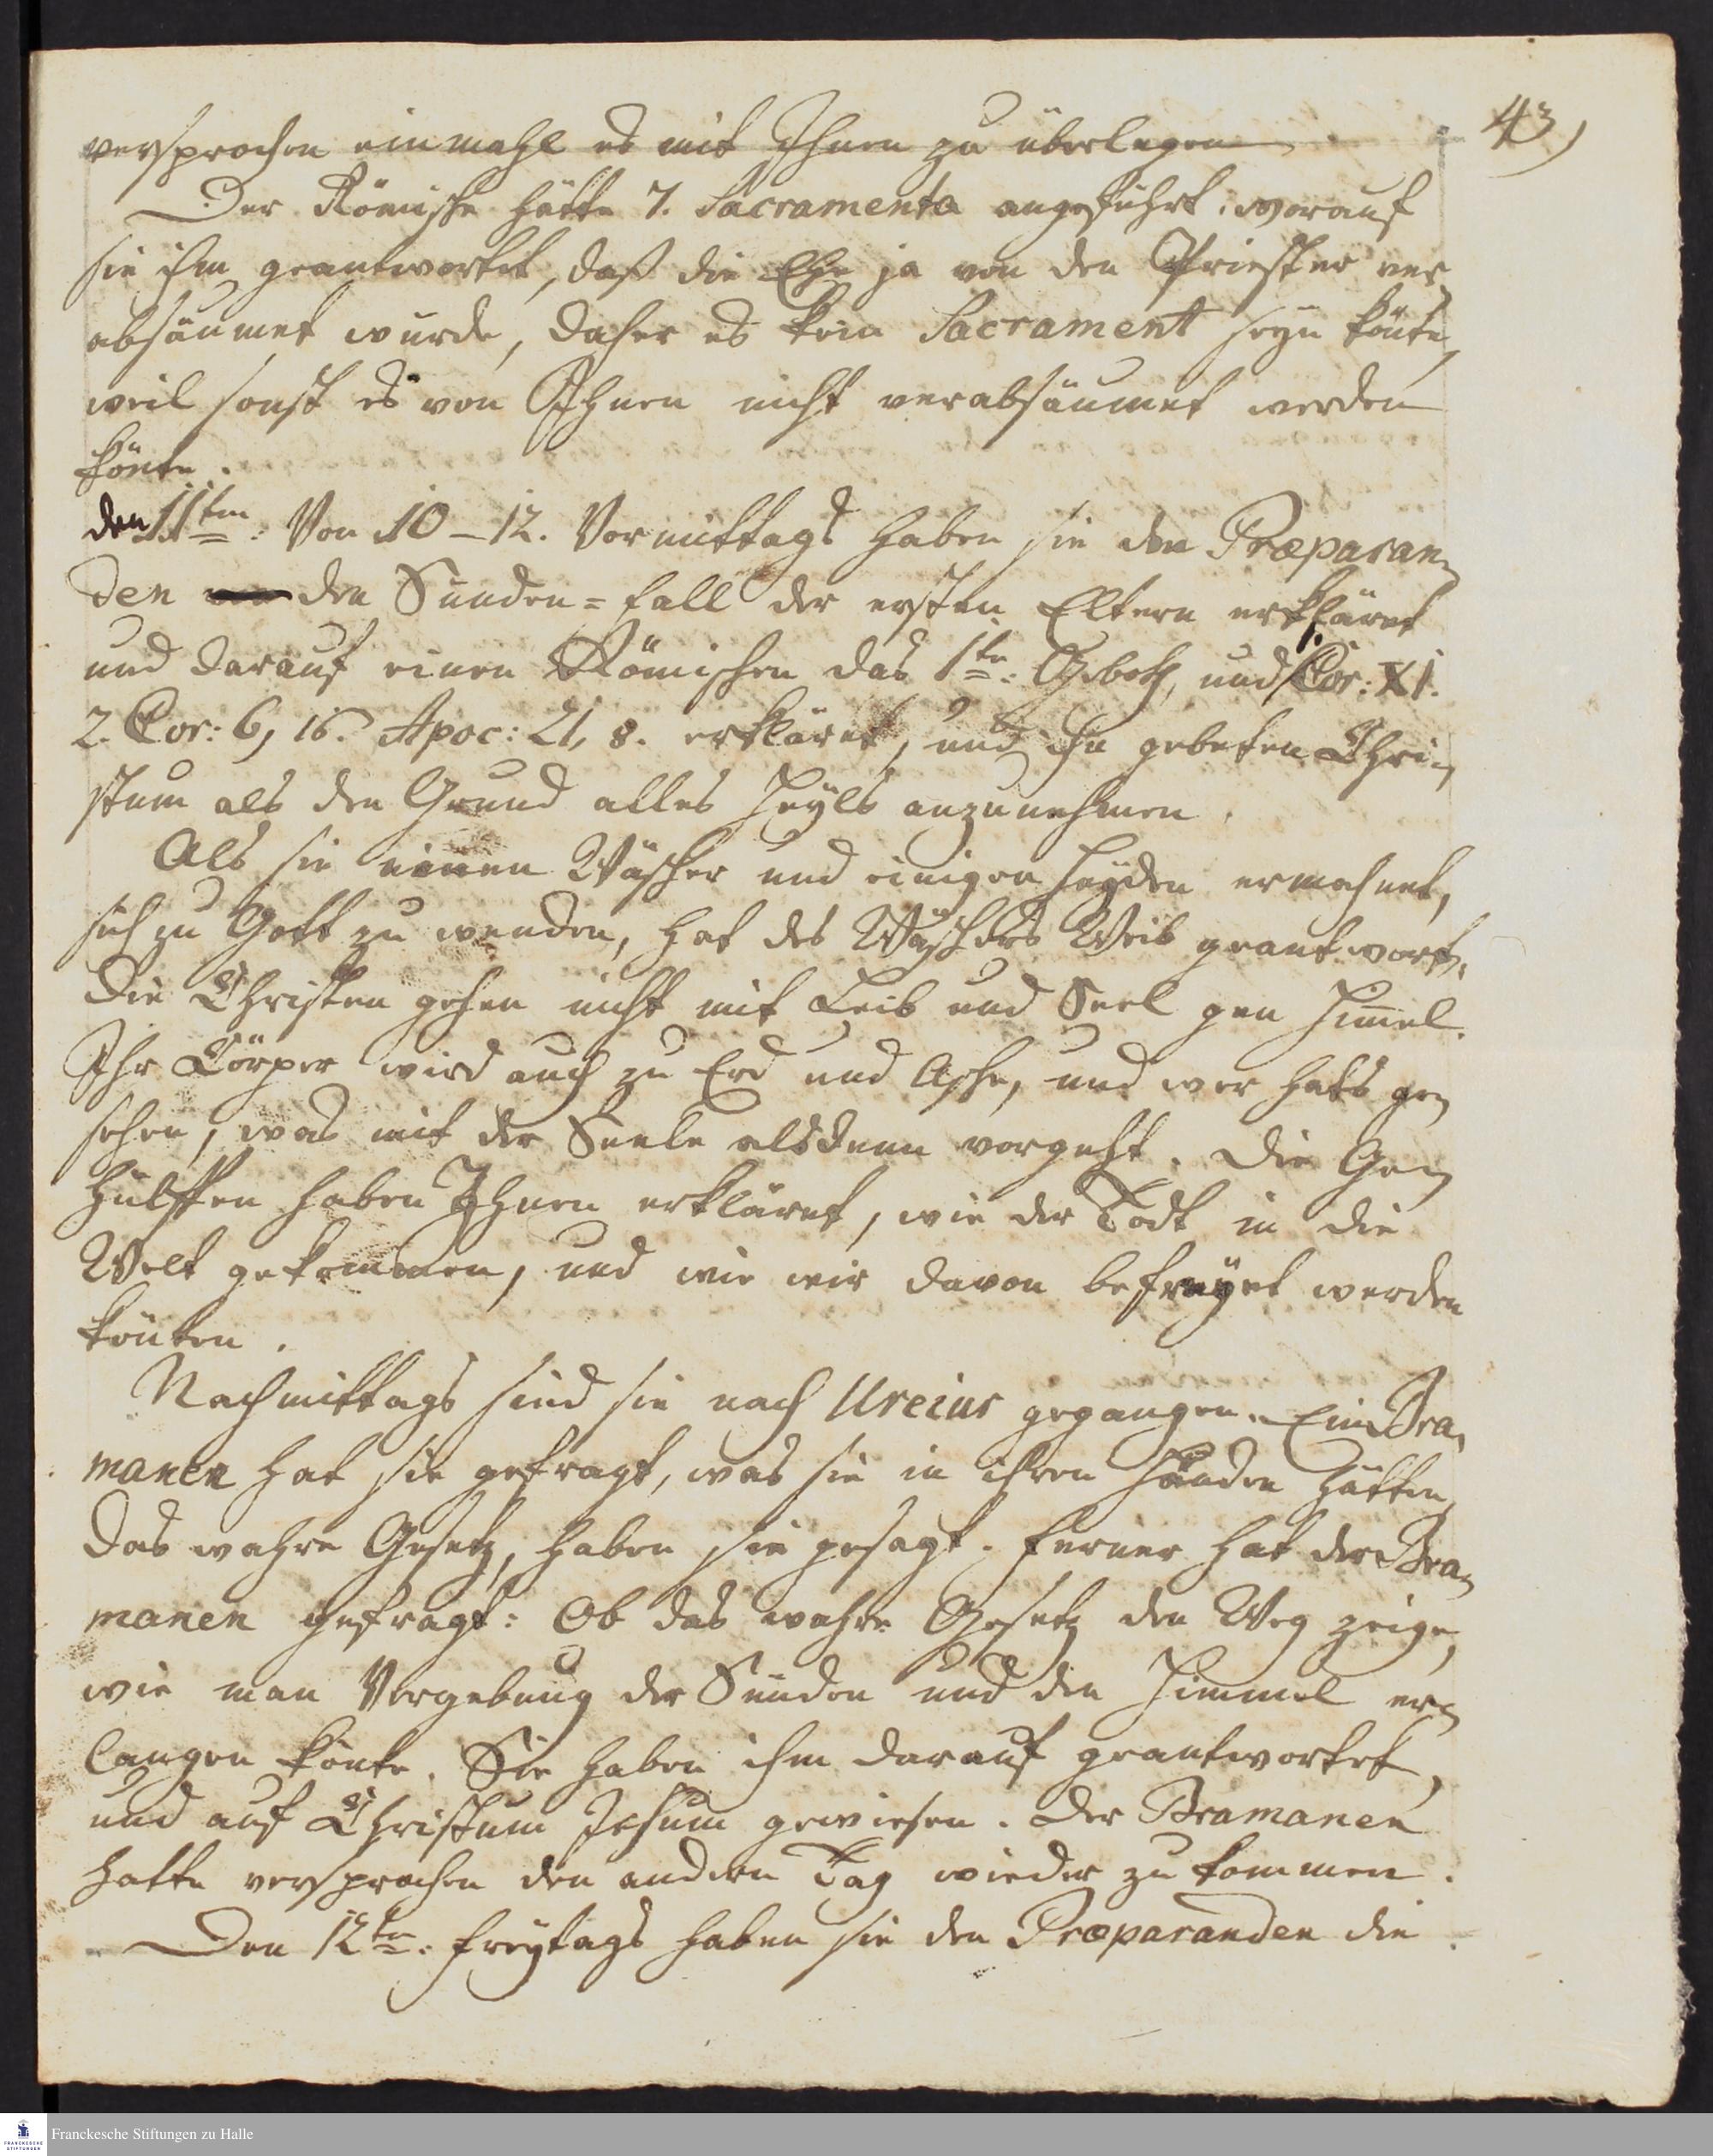 43)
versprochen einmahl es mit Ihnen zu überlegen.
Der Römische hätte 7. Sacramenta angeführt: worauf
sie ihm geantwortet, daß die Ehe ja von den Priester ver
absäumet würde, daher es kein Sacrament seyn könte,
weil sonst es von Ihnen nicht verabsäumet werden
könte.
den 11ten: Von 10–12. Vormittags haben sie den Præparan-
den den Sünden=fall der ersten Eltern erkläret
und darauf einen Römischen das 1te: Geboth, und Cor: XI.
2. Cor: 6, 16. Apoc: 21, 8. erkläret, und ihn gebeten Chri-
stum als den Grund alles Heyls anzunehmen.
Als sie einen Wäscher und einigen Heyden ermahnet,
sich zu Gott zu wenden, hat des Wäschers Weib geantwort:
Die Christen gehen nicht mit Leib und Seel gen Himel.
Ihr Cörper wird auch zu Erd und Asche, und wer hats ge-
sehen, was mit der Seele alsdenn vorgeht. Die Ge-
hülffen haben Ihnen erkläret, wie der Todt in die
Welt gekommen, und wie wir davon befreyet werden
könten.
Nachmittags sind sie nach Ureiur gegangen. Ein Bra-
manen hat sie gefragt, was sie in ihren Händen hätten,
Das wahre Gesetz, haben sie gesagt. Ferner hat der Bra-
manen gefragt: Ob das wahre Gesetz den Weg zeige,
wie man Vergebung der Sünden und den Himmel er-
langen könte. Sie haben ihm darauf geantwortet,
und auf Christum Jesum gewiesen. Der Bramanen
hatte versprochen den andern Tag wieder zu kommen.
Den 12te: Freytags haben sie den Præparanden die
Franckesche Stiftungen zu Halle